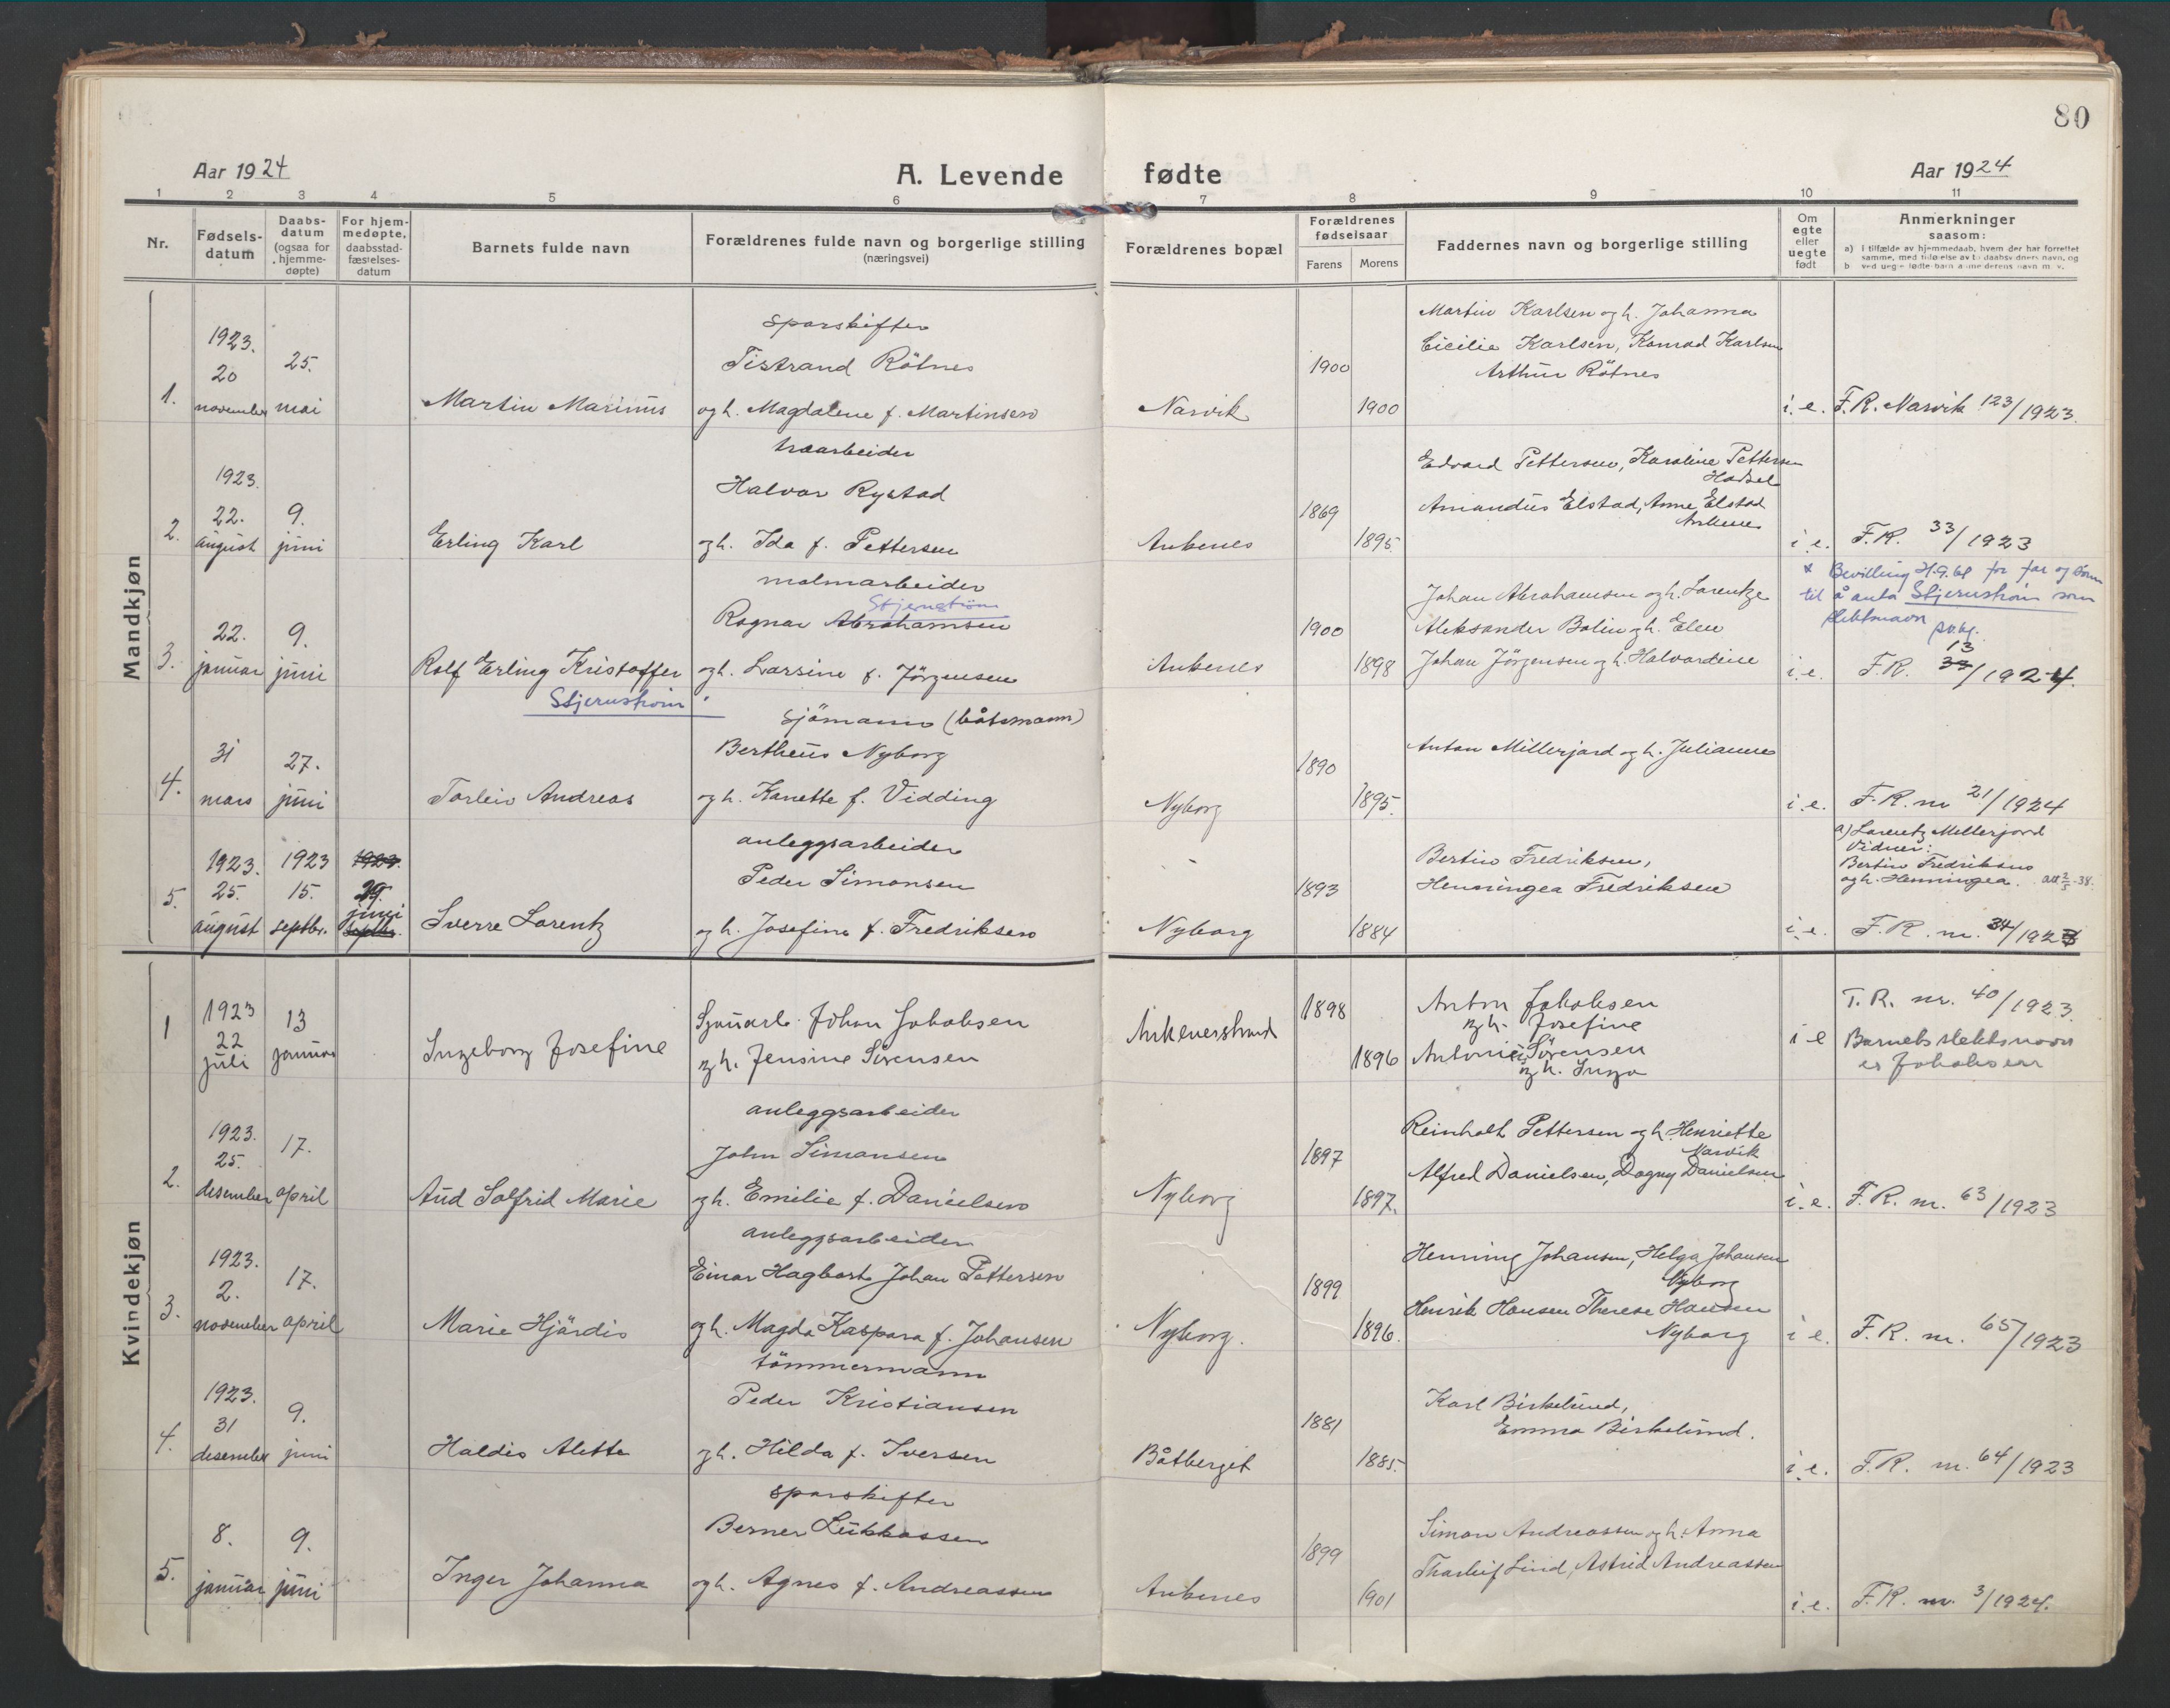 80
Aar 1924
A. Levende fødte
Aar 1924
1 2 3 4 5 6 7 8 9 10 11
Nr.
Fødsels-
datum
Daabs-
datum
(ogsaa for
hjemme-
døpte)
For hjem-
medøpte,
daabsstad-
fæstelses-
datum
Barnets fulde navn
Forældrenes fulde navn og borgerlige stilling
(næringsvei)
Forældrenes bopæl
Forældrenes
fødselsaar
Farens Morens
Faddernes navn og borgerlige stilling
Om
egte
eller
uegte
født
Anmerkninger
saasom:
a) i tilfælde av hjemmedaab, hvem der har forrettet
samme, med tilføielse av to daabsvidners navn, og
b ved uegte fødte barn anmelderens navn m. v.
Mandkjøn
1.
1923.
20
november
25.
mai
Martin Marinus
sporskifter
Tistrand Rötnes
og h. Magdalene f. Martinsen
Narvik
1900
1900
Martin Karlsen og h. Johanna
Cicilie Karlsen, Konrad Karlsen
Arthur Rötnes
i.e.
F.R. Narvik 123/1923.
2.
1923.
22.
august
9.
juni
Erling Karl
træarbeider
Halvor Rystad
og h. Ida f. Pettersen
Ankenes
1869
1895.
Edvard Pettersen, Karoline Pettersen
Hadsel
Amandus Elstad, Anne Elstad
Ankenes
i.e.
F.R. 33/1923
3.
22.
januar
9.
juni
Rolf Erling Kristoffer
Stjernstrøm
malmarbeider
Stjernström
Ragnar Abrahamsen
og h. Larsine f. Jörgensen
Ankenes
1900
1898
Johan Abrahamsen og h. Lorentze
Aleksander Bolin og h. Elen
Johan Jörgensen og h. Halvardine
i.e.
x Bevilling for far og sönn
til å anta Stjernström som
slektnavn
13
F.R. 33/1924.
4.
31
mars
27.
juni
Torleiv Andreas
sjömann (båtsmann)
Bertheus Nyborg
og h. Kanette f. Vidding
Nyborg
1890
1895.
Anton Millerjord og h. Julianne
i.e.
F.R. nr 21/1924
5.
1923.
25.
august
1923
15.
septbr.
1923.
29.
juni
septbr.
Sverre Lorentz
anleggsarbeider
Peder Simonsen
og h. Josefine f. Fredriksen
Nyborg
1893
1884
Bertin Fredriksen,
Henningea Fredriksen
i.e.
a) Lorentz Millerjord
Vidner:
Bertin Fredriksen
og h. Henningea. att 2/5-38.
F.R. nr. 34/1923
Kvindekjøn
1
1923
22
juli
13
januar
Ingeborg Josefine
Sjauarb. Johan Jakobsen
og h. Jensine Sørensen
Ankenesstrand
1898
1896
Anton Jakobsen
og h. Josefine
Antonius Sörensen
og h. Inga
i e
F.R. nr. 40/1923.
Barnets slektsnavn
er Jakobsen
2.
1923.
25.
desember
17.
april
Aud Solfrid Marie
anleggsarbeider
John Simonsen
og h. Emilie f. Danielsen
Nyborg
1897
1897.
Reinholt Pettersen og h. Henriette
Narvik
Alfred Danielsen, Dagny Danielsen
i.e.
F.R. nr. 63/1923
3.
1923.
2.
november
17.
april
Marie Hjördis
anleggsarbeider
Einar Hagbart Johan Pettersen
og h. Magda Kaspara f. Johansen
Nyborg.
1899
1896.
Henning Johansen, Helga Johansen
Nyborg
Henrik Hansen Therese Hansen
Nyborg
i e.
F.R. nr. 65/1923
4.
1923.
31
desember
9.
juni
Haldis Alette
tömmermann
Peder Kristiansen
og h. Hilda f. Iversen
Båtberget
1881
1885.
Karl Birkelund,
Emma Birkelund.
i.e.
F.R. nr. 64/1923
5.
8.
januar
9.
juni
Inger Johanna
sporskifter
Berner Lukkassen
og h. Agnes f. Andreassen
Ankenes
1899
1901
Simon Andreassen og h. Anna
Tharleif Lind, Astrid Andreassen
i.e.
F.R. nr. 3/1924.